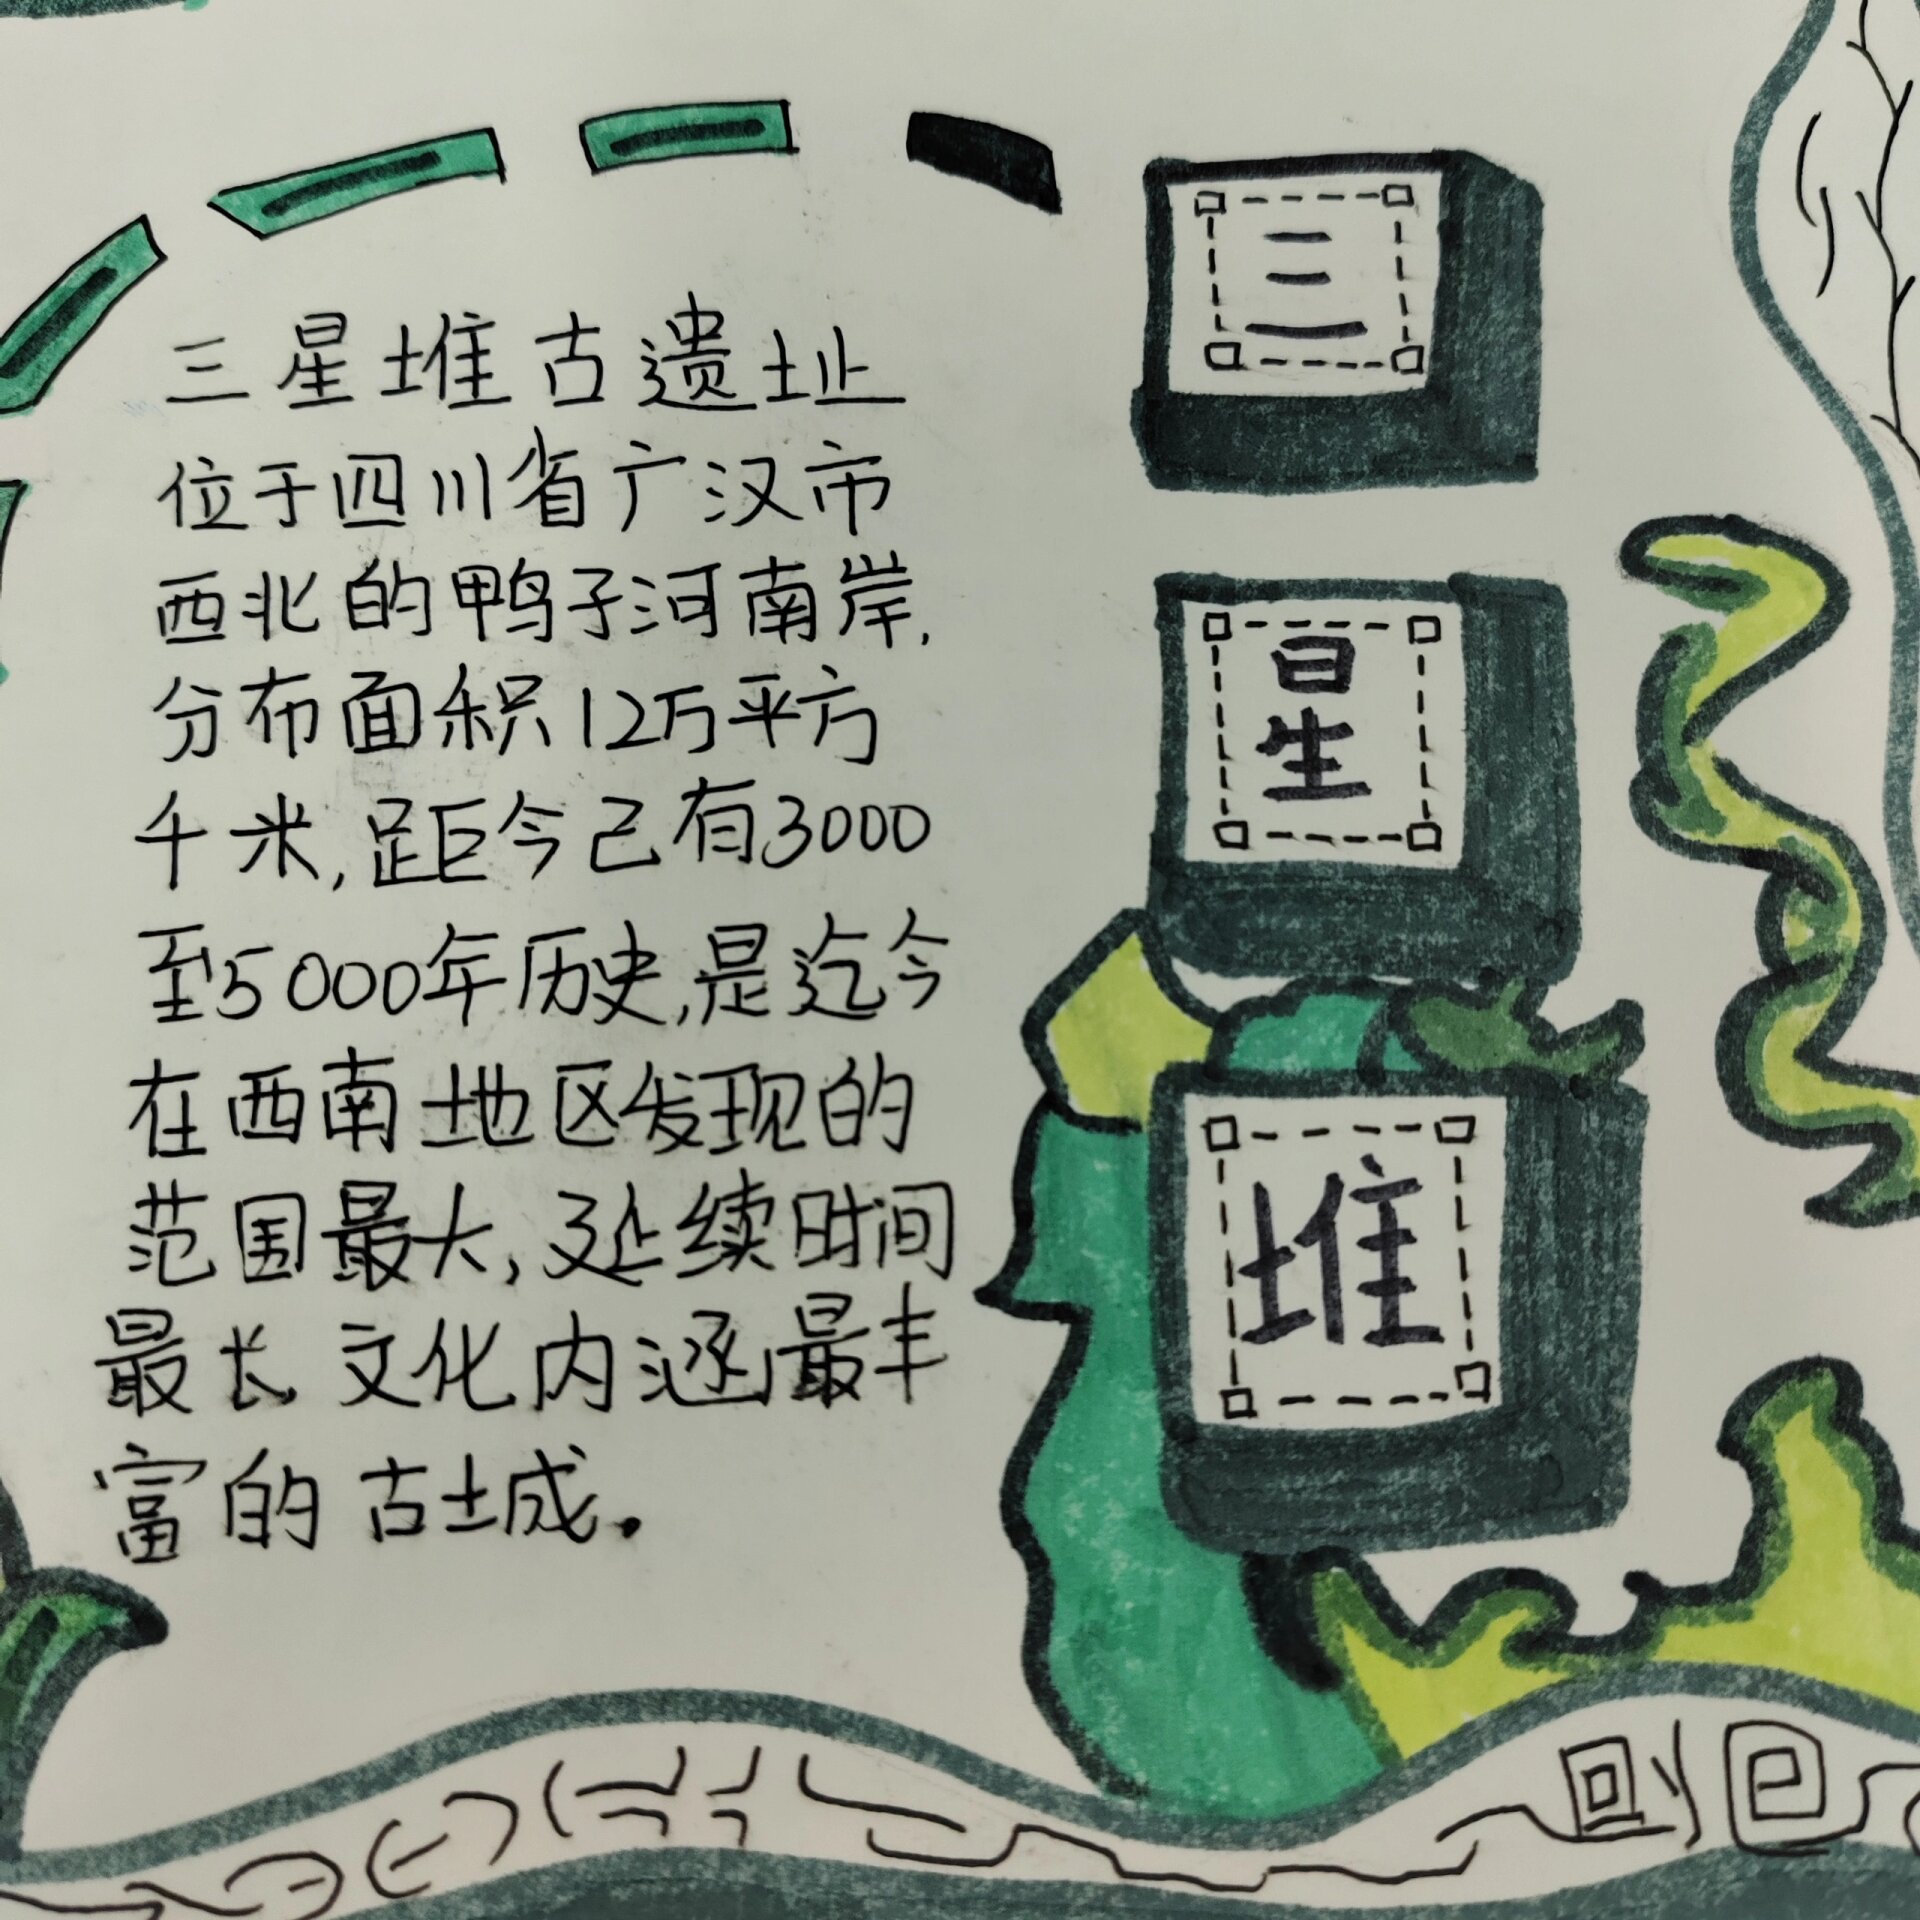 三星堆古遗址
位于四川省广汉市
西北的鸭子河南岸,
分布面积12万平方
千米,距今已有3000
至5000年历史,是迄今
在西南地区发现的
范围最大,延续时间
最长,文化内涵最丰
富的古城.
三
星
堆